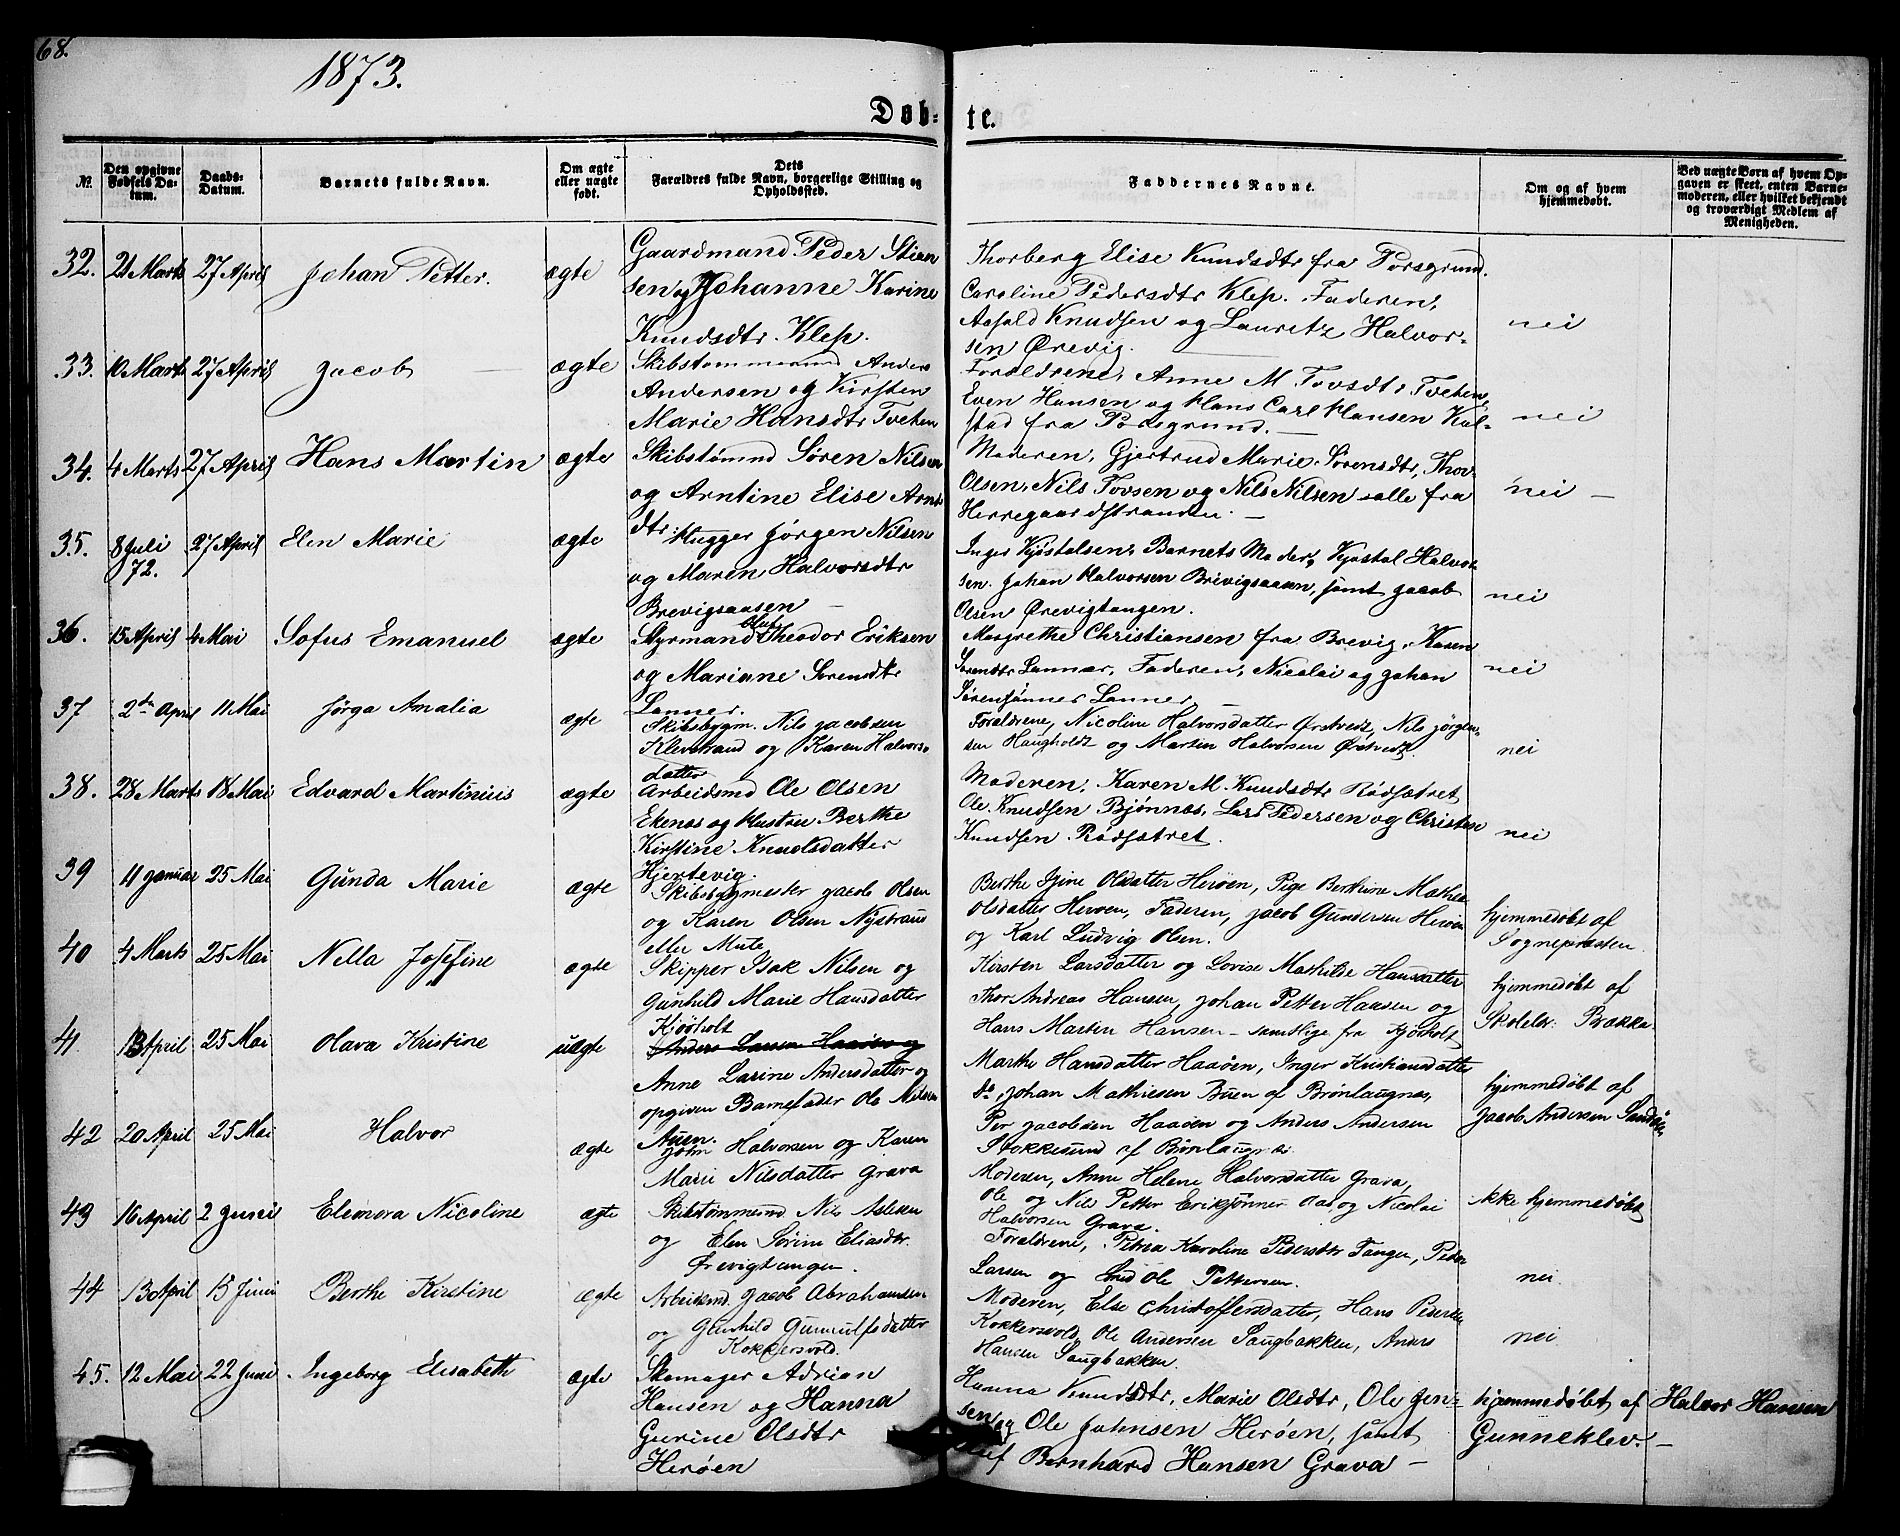 68.
1873.
Døb-
te.
№
Den opgivne Fødsels Datum.
Daabs-Datum.
Barnets fulde Navn.
Om ægte eller uægte født.
Dets Forældres fulde Navn, borgerlige Stilling og Opholdssted.
Faddernes Navne.
Om og af hvem hjemmedøbt.
Ved uægte Børn af hvem Opgaven er skeet, enten Barnemoderen, eller hvilket bekjendt og troværdigt Medlem af Menigheden.
32. 21 Marts 27 April Johan Petter. ægte
Gaardmand Peder Stien
sen og Johanne Karine
Knudsdtr Klep.
Thorberg Elise Knudsdtr fra Porsgrund.
Caroline Pedersdtr Klep. Faderen,
Knudsen og Lauretz Halvor-
sen Ørevig.
nei
33. 10 Marts 27 April Jacob ægte
Skibstømmermd Anders
Andersen og Kirsten
Marie Hansdtr Tveten
Forældrene, Anne M. Tovsdtr Tveten,
Even Hansen og Hans Carl Hansen Kul-
stad fra
nei
34. 4 Marts 27 April Hans Martin ægte
Skibstømmd Søren Nilsen
og Arntine Elise Arns
dtr.
Moderen, Gjertrud Marie Sørensdtr, Thov
Olsen, Nils Tovsen og Nils Nilsen alle fra
Herregaardstranden. —
nei —
35. 8 Juli 72. 27 April Elen Marie ægte
Hugger Jørgen Nilsen
og Maren Halvorsdtr
Brevigsaasen —
Inger Kjøstolsen, Barnets Moder, Kjøstol Halvor
sen. Johan Halvorsen Brevigsaasen, samt Jacob
Olsen Ørevigtangen.
nei
36. 15 April 4 Mai Sofus Emanuel ægte
Styrmand Olus Theodor Eriksen
og Mariane Sørensdtr
Lanner.
Margrethe Christiansen fra Brevig, Karen
Sørendtr Lanner, Faderen, Nicolai og Johan
Sørensønner Lanner,
nei
37 2den April 11 Mai Jørga Amalia ægte
Skibsbygm. Nils Jacobsen
Klevstrand og Karen Halvors-
datter
Forældrene, Nicoline Halvorsdatter Ørstvedt, Nils Jørgen-
sen Haugholdt og Martin Halvorsen Ørstvedt
nei
38. 28 Marts 18 Mai Edvard Martinius ægte
Arbeidsmd Ole Olsen
Ekenæs og Hustru Berthe
Kirstine Knudsdatter
Hjertevig.
Moderen, Karen M. Knudsdtr Rødsætret
Ole Knudsen Bjønnæs, Lars Pedersen og Christen
Knudsen Rødsætret.
nei
39 11 Januar 25 Mai Gunda Marie ægte
Skibsbygmester Jacob Olsen
og Karen Olsen Nystrand
eller Mule
Berthe Gine Olsdatter Herøen, Pige Berthine Mathea
Olsdatter Herøen, Faderen, Jacob Gundersen Herøen
og Karl Ludvig Olsen.
hjemmedøbt af
Sognepræsten
40 4 Marts 25 Mai Nella Josefine ægte
Skipper Isak Nilsen og
Gunhild Marie Hansdatter
Kjøsholt
Kirsten Larsdatter og Lovise Mathilde Hansdatter
Thor Andreas Hansen, Johan Petter Hansen og
Hans Martin Hansen — samtlige fra Kjøsholt
hjemmedøbt af
Skolelr. Brække
41 13 April 25 Mai Olava Kristine uægte
Anders Larsen Haaøen og
Anne Larine Andersdatter og
opgiven Barnefader Ole Nilsen
Auen.
Marthe Hansdatter Haaøen, Inger Kristiansdatter
do, Johan Mathiesen Buen af Brønlaugnæs,
Per Jacobsen Haaøen og Anders Andersen
Stokkesund af
hjemmedøbt af
Jacob Andersen Sandøen
42 20 April 25 Mai Halvor ægte
John Halvorsen og Karen
Marie Nilsdatter Grava
Moderen, Anne Helene Halvorsdatter Grava,
Ole og Nils Petter Eriksønner Aas og Nicolai
Halvorsen Grava.
ikke hjemmedøbt
43 16 April 2 Juni Eleonora Nicoline ægte
Skibstømmermd Nils Aslesen
og Elen Sørine Eliasdtr.
Ørevigtangen.
Forældrene, Petrea Karoline Pedersdtr Tangen, Peder
Larsen og Ole Pettersen.
nei.
44 13 April 15 Juni Berthe Kirstine ægte
Arbeidsmd Jacob Abrahamsen
og Gunhild Gunnulfsdatter
Kokkersvold.
Moderen, Else Christoffersdatter, Hans Pedersen
Kokkersvold, Ole Andersen Saugbakken, Anders
Hansen Saugbakken.
nei
45. 12 Mai 22 Juni Ingeborg Elisabeth ægte
Skomager Adrian
Hansen og Hanna
Gurine Olsdtr
Herøen
Hanna Knudsdtr, Marie Olsdtr, Ole Jen-
sen og Ole Johnsen Herøen, samt
Bernhard Hansen Grava —
hjemmedøbt af Halvor Hansen
Gunneklev. —